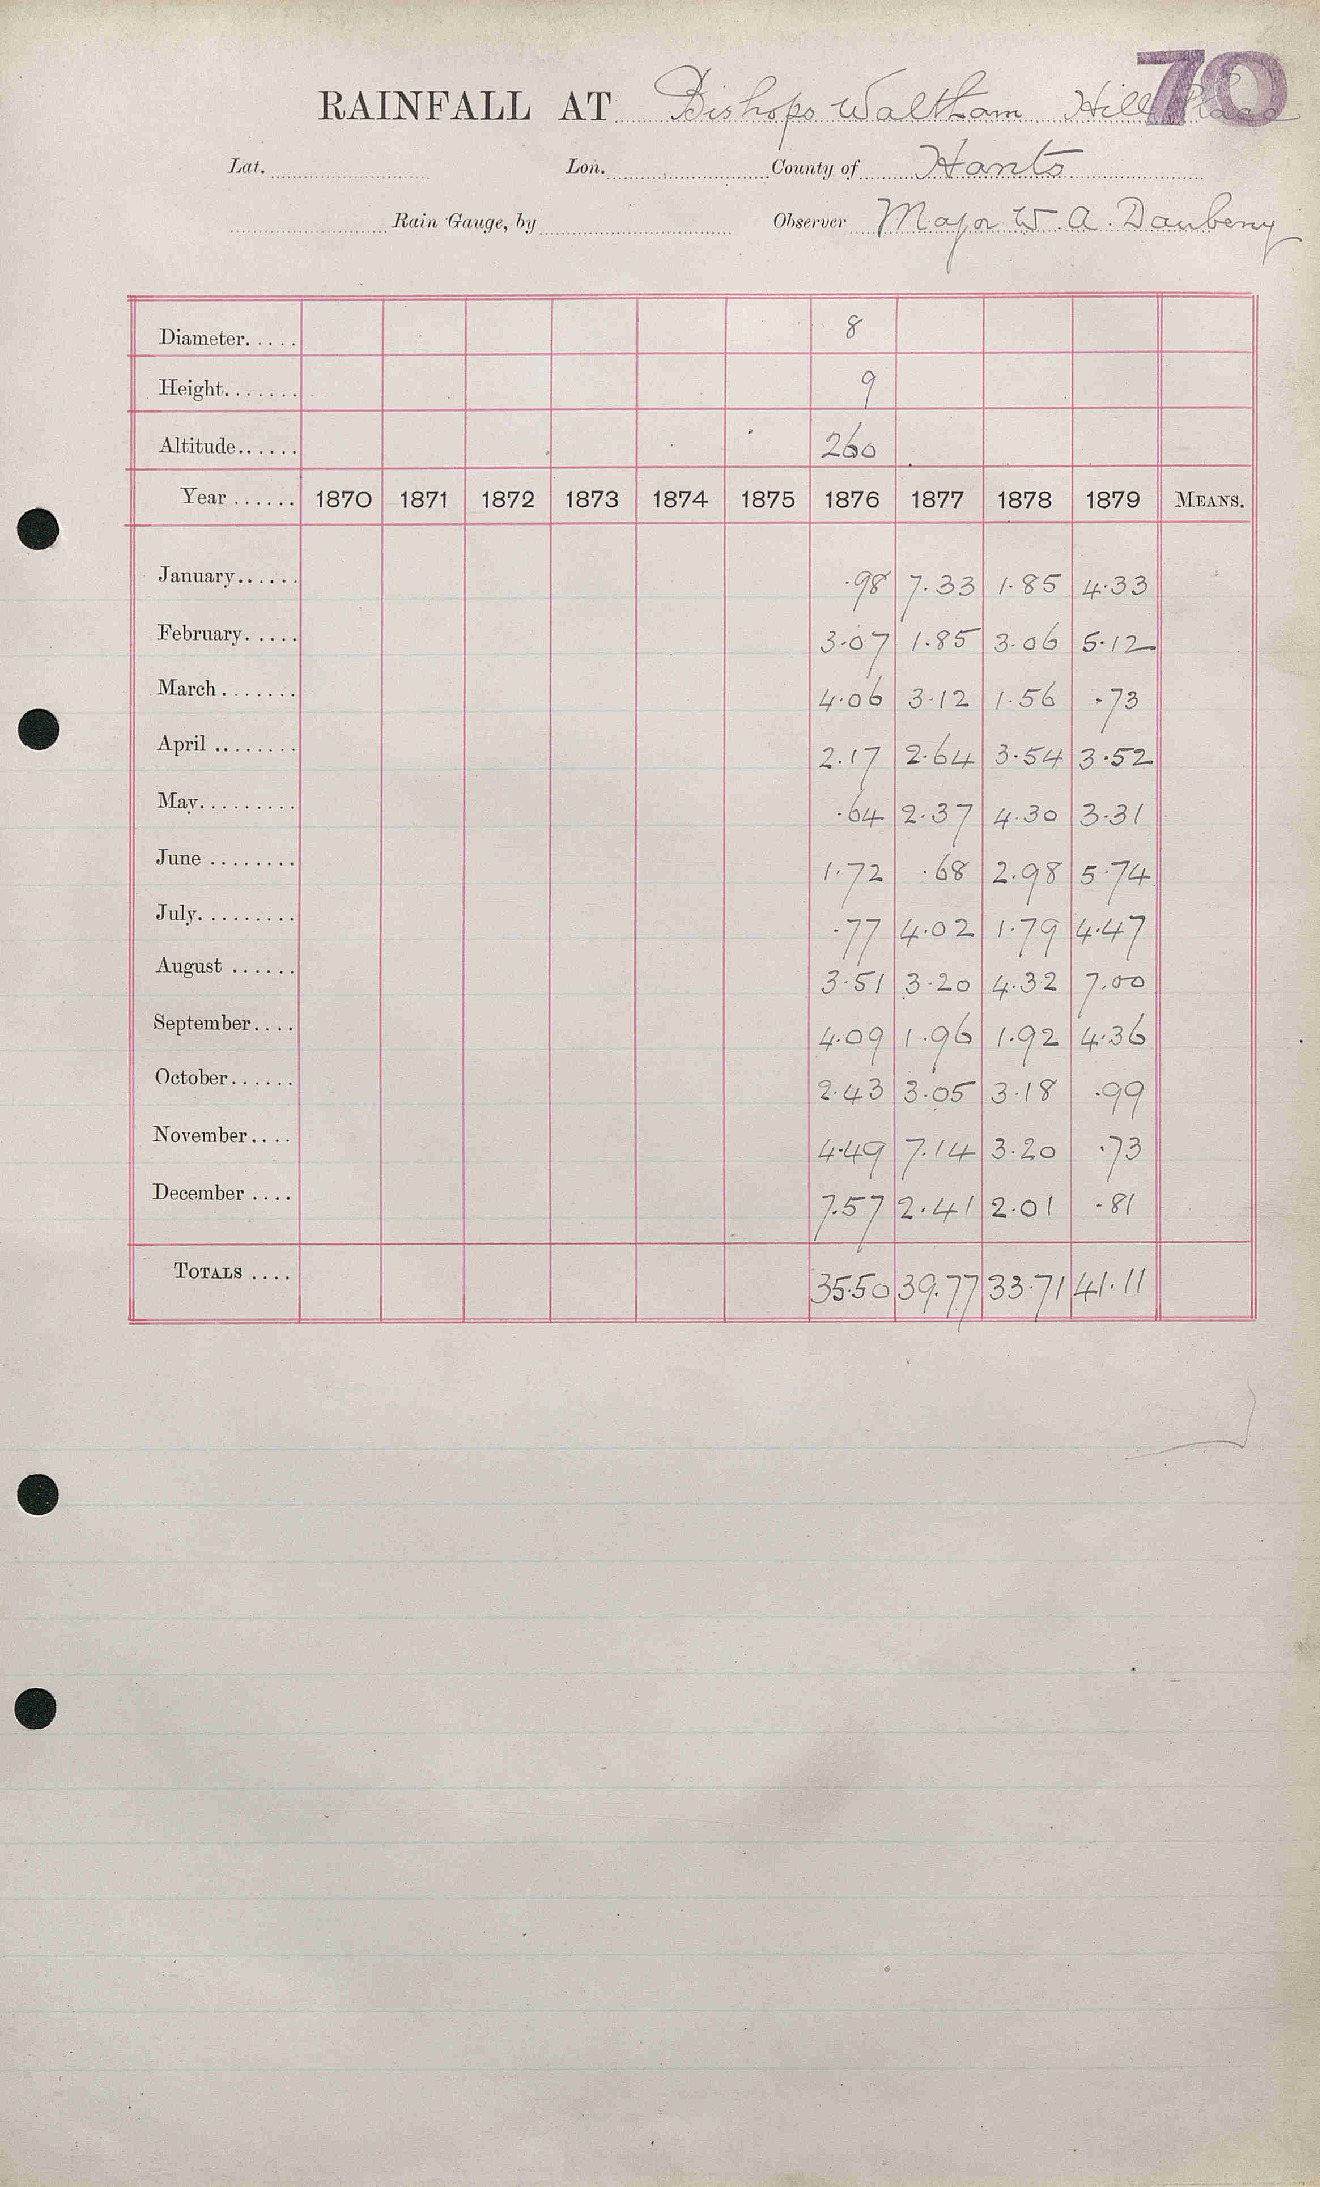 70
RAINFALL AT Bishops Waltham Hill Place
Lat. Lon. County of Hants
Rain Gauge, by Observer Major W. A. Daubeny
Diameter..... 8
Height....... 9
Altitude...... 260
Year ...... 1870 1871 1872 1873 1874 1875 1876 1877 1878 1879 MEANS.
January...... .98 7.33 1.85 4.33
February..... 3.07 1.85 3.06 5.12
March ....... 4.06 3.12 1.56 .73
April ........ 2.17 2.64 3.54 3.52
May......... .64 2.37 4.30 3.31
June ........ 1.72 .68 2.98 5.74
July......... .77 4.02 1.79 4.47
August ...... 3.51 3.20 4.32 7.00
September.... 4.09 1.96 1.92 4.36
October...... 2.43 3.05 3.18 .99
November.... 4.49 7.14 3.20 .73
December .... 7.57 2.41 2.01 .81
TOTALS .... 35.50 39.77 33.71 41.11